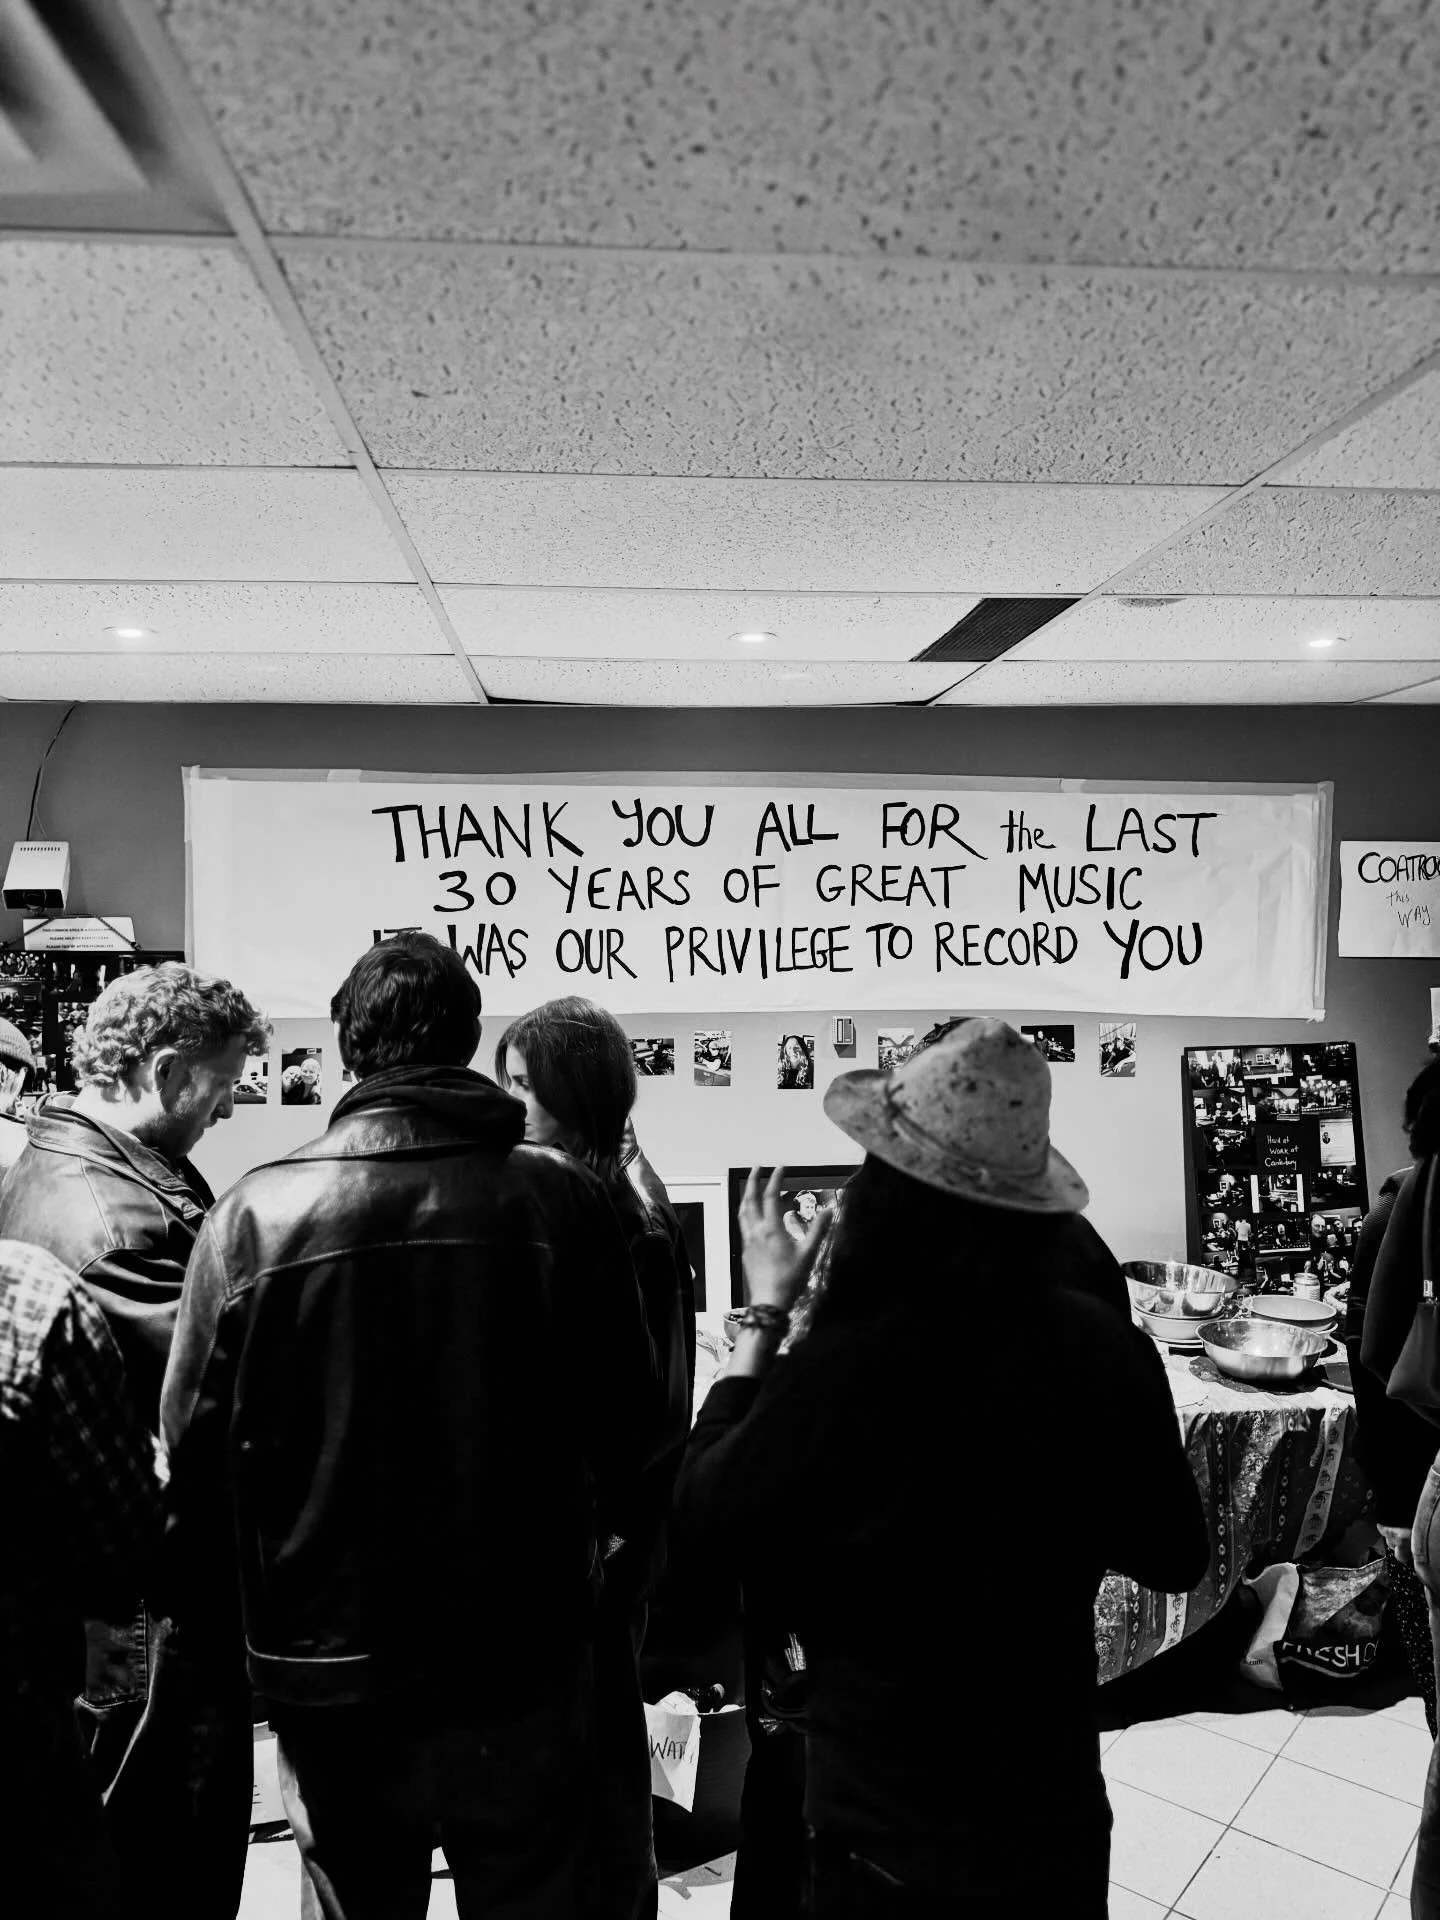 THANK YOU ALL FOR the LAST
30 YEARS OF GREAT MUSIC
IT WAS OUR PRIVILEGE TO RECORD YOU
COATROO
this
WAY
Hard at
WORK at
Canterbury
WAT
FRESH